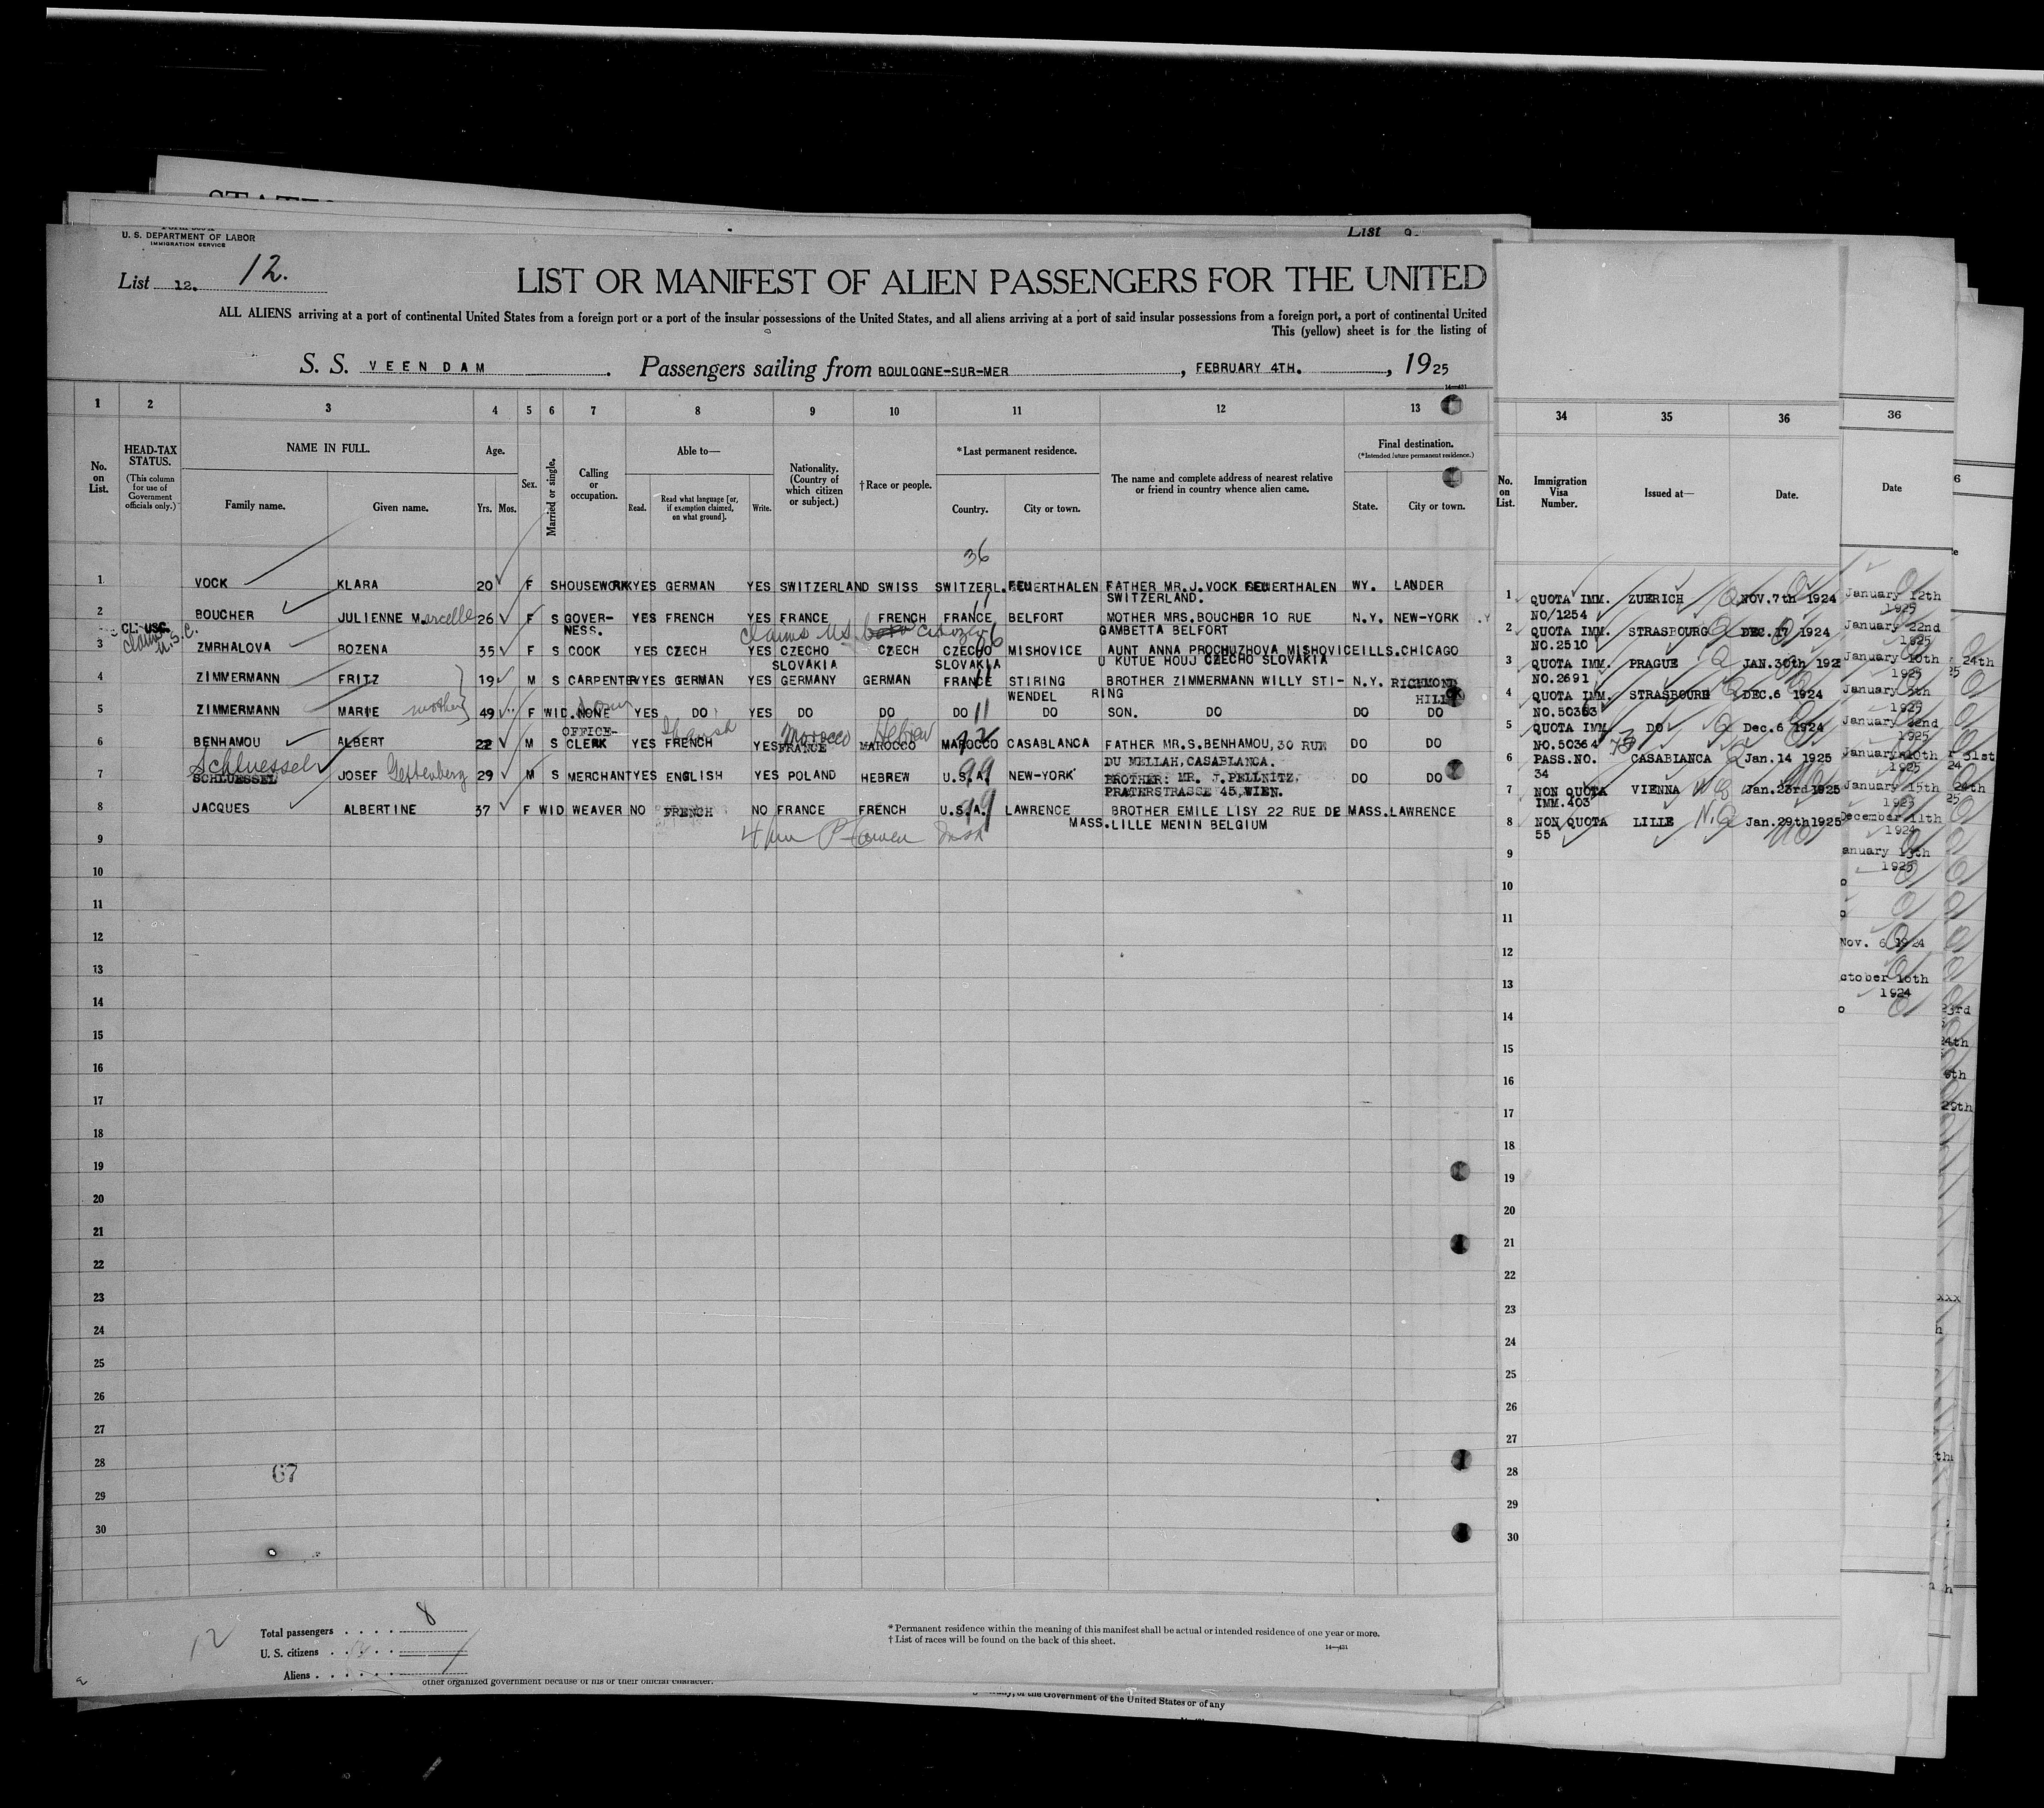 List 9.
U. S. DEPARTMENT OF LABOR
IMMIGRATION SERVICE
List 12. 12.
LIST OR MANIFEST OF ALIEN PASSENGERS FOR THE UNITED
ALL ALIENS arriving at a port of continental United States from a foreign port or a port of the insular possessions of the United States, and all aliens arriving at a port of said insular possessions from a foreign port, a port of continental United
This (yellow) sheet is for the listing of
S. S. VEENDAM. Passengers sailing from BOULOGNE-SUR-MER, FEBRUARY 4TH., 1925
14—431
1 2 3 4 5 6 7 8 9 10 11 12 13 34 35 36 36
No. on List. HEAD-TAX STATUS. (This column for use of Government officials only.) NAME IN FULL. Family name. Given name. Age. Yrs. Mos. Sex. Married or single. Calling or occupation. Able to— Read. Read what language [or, if exemption claimed, on what ground]. Write. Nationality. (Country of which citizen or subject.) †Race or people. *Last permanent residence. Country. City or town. The name and complete address of nearest relative or friend in country whence alien came. Final destination. (*Intended future permanent residence.) State. City or town. No. on List. Immigration Visa Number. Issued at— Date. Date
36
1 VOCK KLARA 20 F S HOUSEWORK YES GERMAN YES SWITZERLAND SWISS SWITZERL. FEUERTHALEN FATHER MR.J.VOCK FEUERTHALEN WY. LANDER 1 QUOTA IMM. ZUERICH Q NOV.7th 1924 January 12th
SWITZERLAND. NO/1254 1925
2 BOUCHER JULIENNE Marcelle 26 F S GOVER- YES FRENCH YES FRANCE FRENCH FRANCE BELFORT MOTHER MRS.BOUCHER 10 RUE N.Y. NEW-YORK 2 QUOTA IMM. STRASBOURG Q DEC.17 1924 January 22nd
NESS. GAMBETTA BELFORT NO.2510 1925
CL. USC. claims U.S.C. claims US born citizen
3 ZMRHALOVA BOZENA 35 F S COOK YES CZECH YES CZECHO CZECH CZECHO MISHOVICE AUNT ANNA PROCHUZHOVA MISHOVICE ILLS. CHICAGO 3 QUOTA IMM. PRAGUE Q JAN.30th 192 January 10th
SLOVAKIA SLOVAKIA U KUTUE HOUJ CZECHO SLOVAKIA NO.2691 1925
4 ZIMMERMANN FRITZ 19 M S CARPENTER YES GERMAN YES GERMANY GERMAN FRANCE STIRING BROTHER ZIMMERMANN WILLY STI- N.Y. RICHMOND 4 QUOTA IMM. STRASBOURG DEC.6 1924 January 5th
WENDEL RING HILL NO.50363 1925
5 ZIMMERMANN MARIE mother 49 F WID. NONE YES DO YES DO DO DO 11 DO SON. DO DO DO 5 QUOTA IMM. DO Q Dec.6 1924 January 22nd
NO.50364 1925
OFFICE- Spanish Morocco Hebrew
6 BENHAMOU ALBERT 22 M S CLERK YES FRENCH YES FRANCE MAROCCO MAROCCO CASABLANCA FATHER MR.S.BENHAMOU, 30 RUE DO DO 6 PASS.NO. CASABLANCA Jan.14 1925 January 10th
DU MELLAH, CASABLANCA. 34 1925
Schluessel
7 SCHLUESSEL JOSEF 29 M S MERCHANT YES ENGLISH YES POLAND HEBREW U.S.A. 99 NEW-YORK BROTHER: MR. J.PELLNITZ, DO DO 7 NON QUOTA VIENNA NQ Jan.23rd1925 January 15th
PRATERSTRASSE 45, WIEN. IMM.403 1925
8 JACQUES ALBERTINE 37 F WID WEAVER NO FRENCH NO FRANCE FRENCH U.S.A. 99 LAWRENCE BROTHER EMILE LISY 22 RUE DE MASS. LAWRENCE 8 NON QUOTA LILLE N.Q Jan.29th1925 December 11th
MASS. LILLE MENIN BELGIUM 55 1924
9 9 January 13th
1925
10 10
11 11
12 12 Nov. 6 1924
13 13 October 16th
1924
14 14 23rd
15 15 24th
16 16
17 17 29th
18 18
19 19
20 20
21 21
22 22
23 23 xxx
24 24
25 25
26 26
27 27
28 67 28
29 29
30 30
12 Total passengers . . . . 8
U. S. citizens . . . .
Aliens . . . . . .
* Permanent residence within the meaning of this manifest shall be actual or intended residence of one year or more.
† List of races will be found on the back of this sheet.
14—431
other organized government because of his or their official character.
of the Government of the United States or of any